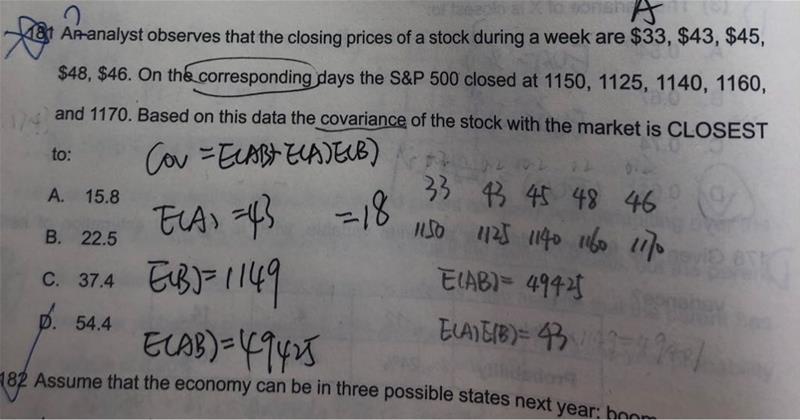 A
?
181 An analyst observes that the closing prices of a stock during a week are $33, $43, $45,
$48, $46. On the corresponding days the S&P 500 closed at 1150, 1125, 1140, 1160,
and 1170. Based on this data the covariance of the stock with the market is CLOSEST
to:
Cov = E(AB)-E(A)E(B)
A. 15.8
33 43 45 48 46
E(A) = 43 = 18
B. 22.5
1150 1125 1140 1160 1170
C. 37.4
E(B) = 1149
E(AB) = 49425
D. 54.4
E(AB) = 49425
E(A)E(B) = 43
182 Assume that the economy can be in three possible states next year: boom